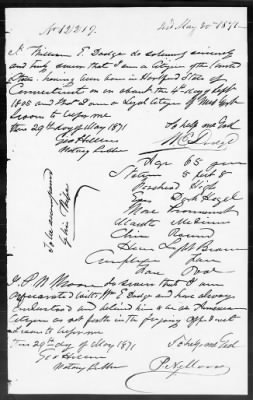 No 12219. Isd May 30th 1871
I, William E Dodge do solemnly sincerely
and truly swear that I am a Citizen of the United
States, having been born in Hartford State of
Connecticut on or about the 4th day of Sept
1805 and that I am a Legal Citizen of New York
Sworn to before me
this 29th day of May 1871 So help me God
Geo Hillen W E Dodge
Notary Public
Age 65 years
Stature 5 feet 8
Forehead High
Eyes Dark Hazel
Nose Prominent
Mouth Medium
Chin Round
Hair Light Brown
Complexion
Face Oval
To be accompanied
by his Wife
I, P N Moore do swear that I am
acquainted with W E Dodge and have always
understood and believed him to be an American
Citizen as set forth in the foregoing affidavit
Sworn to before me
this 29th day of May 1871 So help me God
Geo Hillen
Notary Public P N Moore